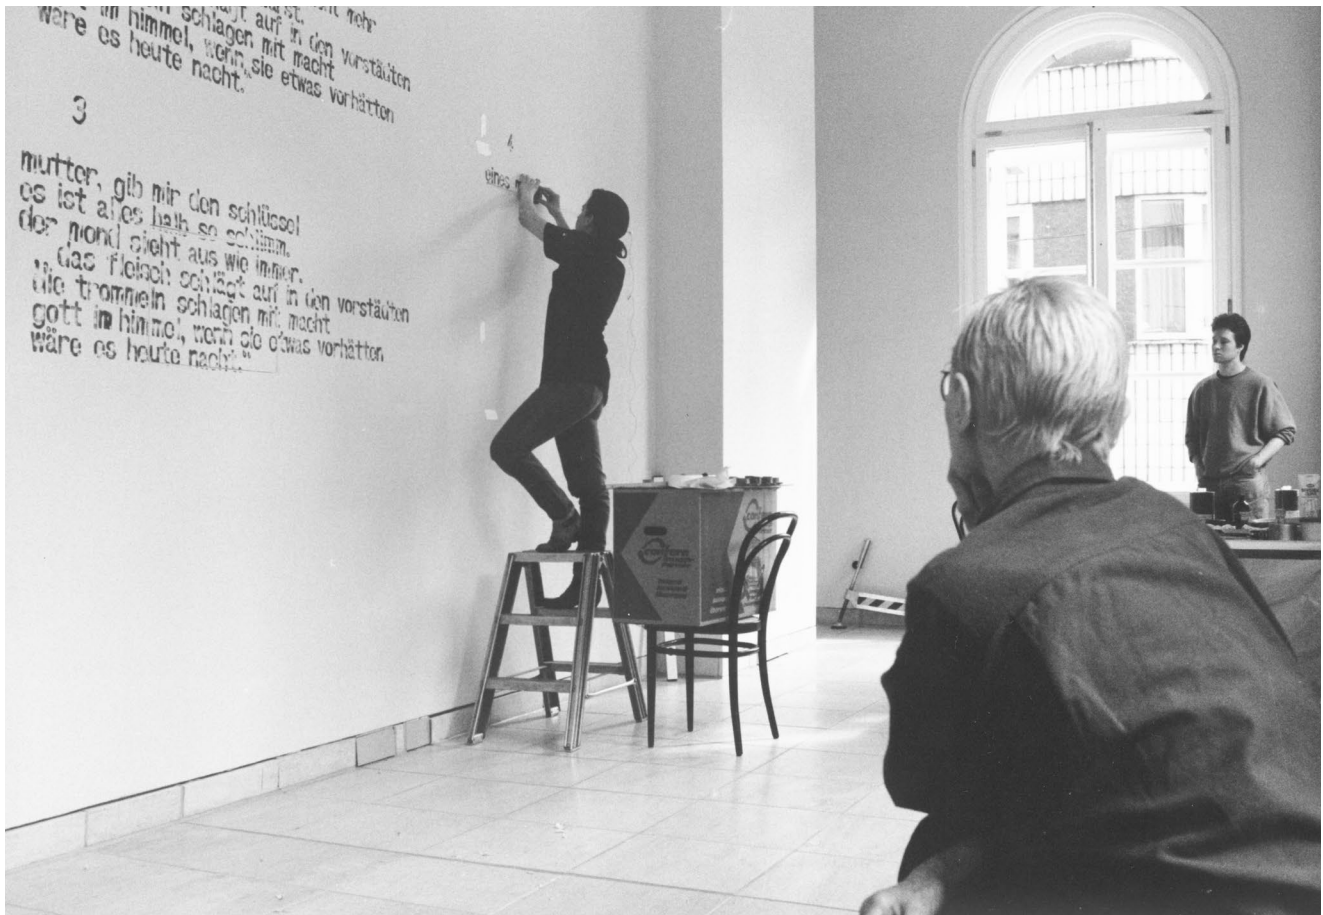 nicht mehr
schlägt auf in den vorstädten
schlagen mit macht
im himmel, wenn sie etwas vorhätten
wäre es heute nacht."
3
mutter, gib mir den schlüssel
es ist alles halb so schlimm.
der mond sieht aus wie immer.
„das fleisch schlägt auf in den vorstädten
die trommeln schlagen mit macht
gott im himmel, wenn sie etwas vorhätten
wäre es heute nacht."
4
eines